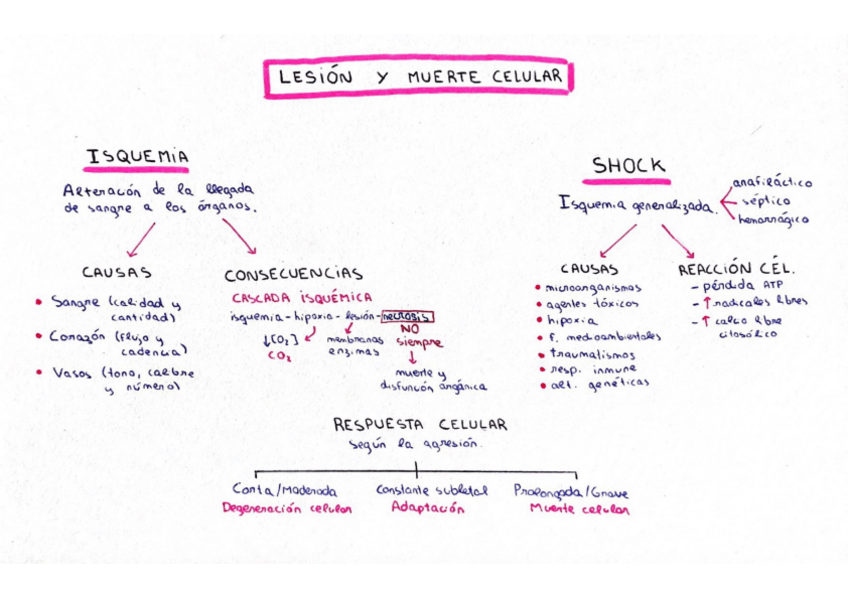 LESIÓN Y MUERTE CELULAR
ISQUEMIA
Alteración de la llegada
de sangre a los órganos.
CAUSAS
• Sangre (calidad y
cantidad)
• Corazón (flujo y
cadencia)
• Vasos (tono, calibre
y número)
CONSECUENCIAS
CASCADA ISQUÉMICA
isquemia - hipoxia - lesión - necrosis
↓[O₂]
CO₂
membranas
enzimas
NO
siempre
muerte y
disfunción orgánica
SHOCK
Isquemia generalizada.
anafiláctico
séptico
hemorrágico
CAUSAS
• microorganismos
• agentes tóxicos
• hipoxia
• f. medioambientales
• traumatismos
• resp. inmune
• alt. genéticas
REACCIÓN CÉL.
- pérdida ATP
- ↑ radicales libres
- ↑ calcio libre
citosólico
RESPUESTA CELULAR
según la agresión.
Corta/Moderada
Degeneración celular
Constante subletal
Adaptación
Prolongada/Grave
Muerte celular